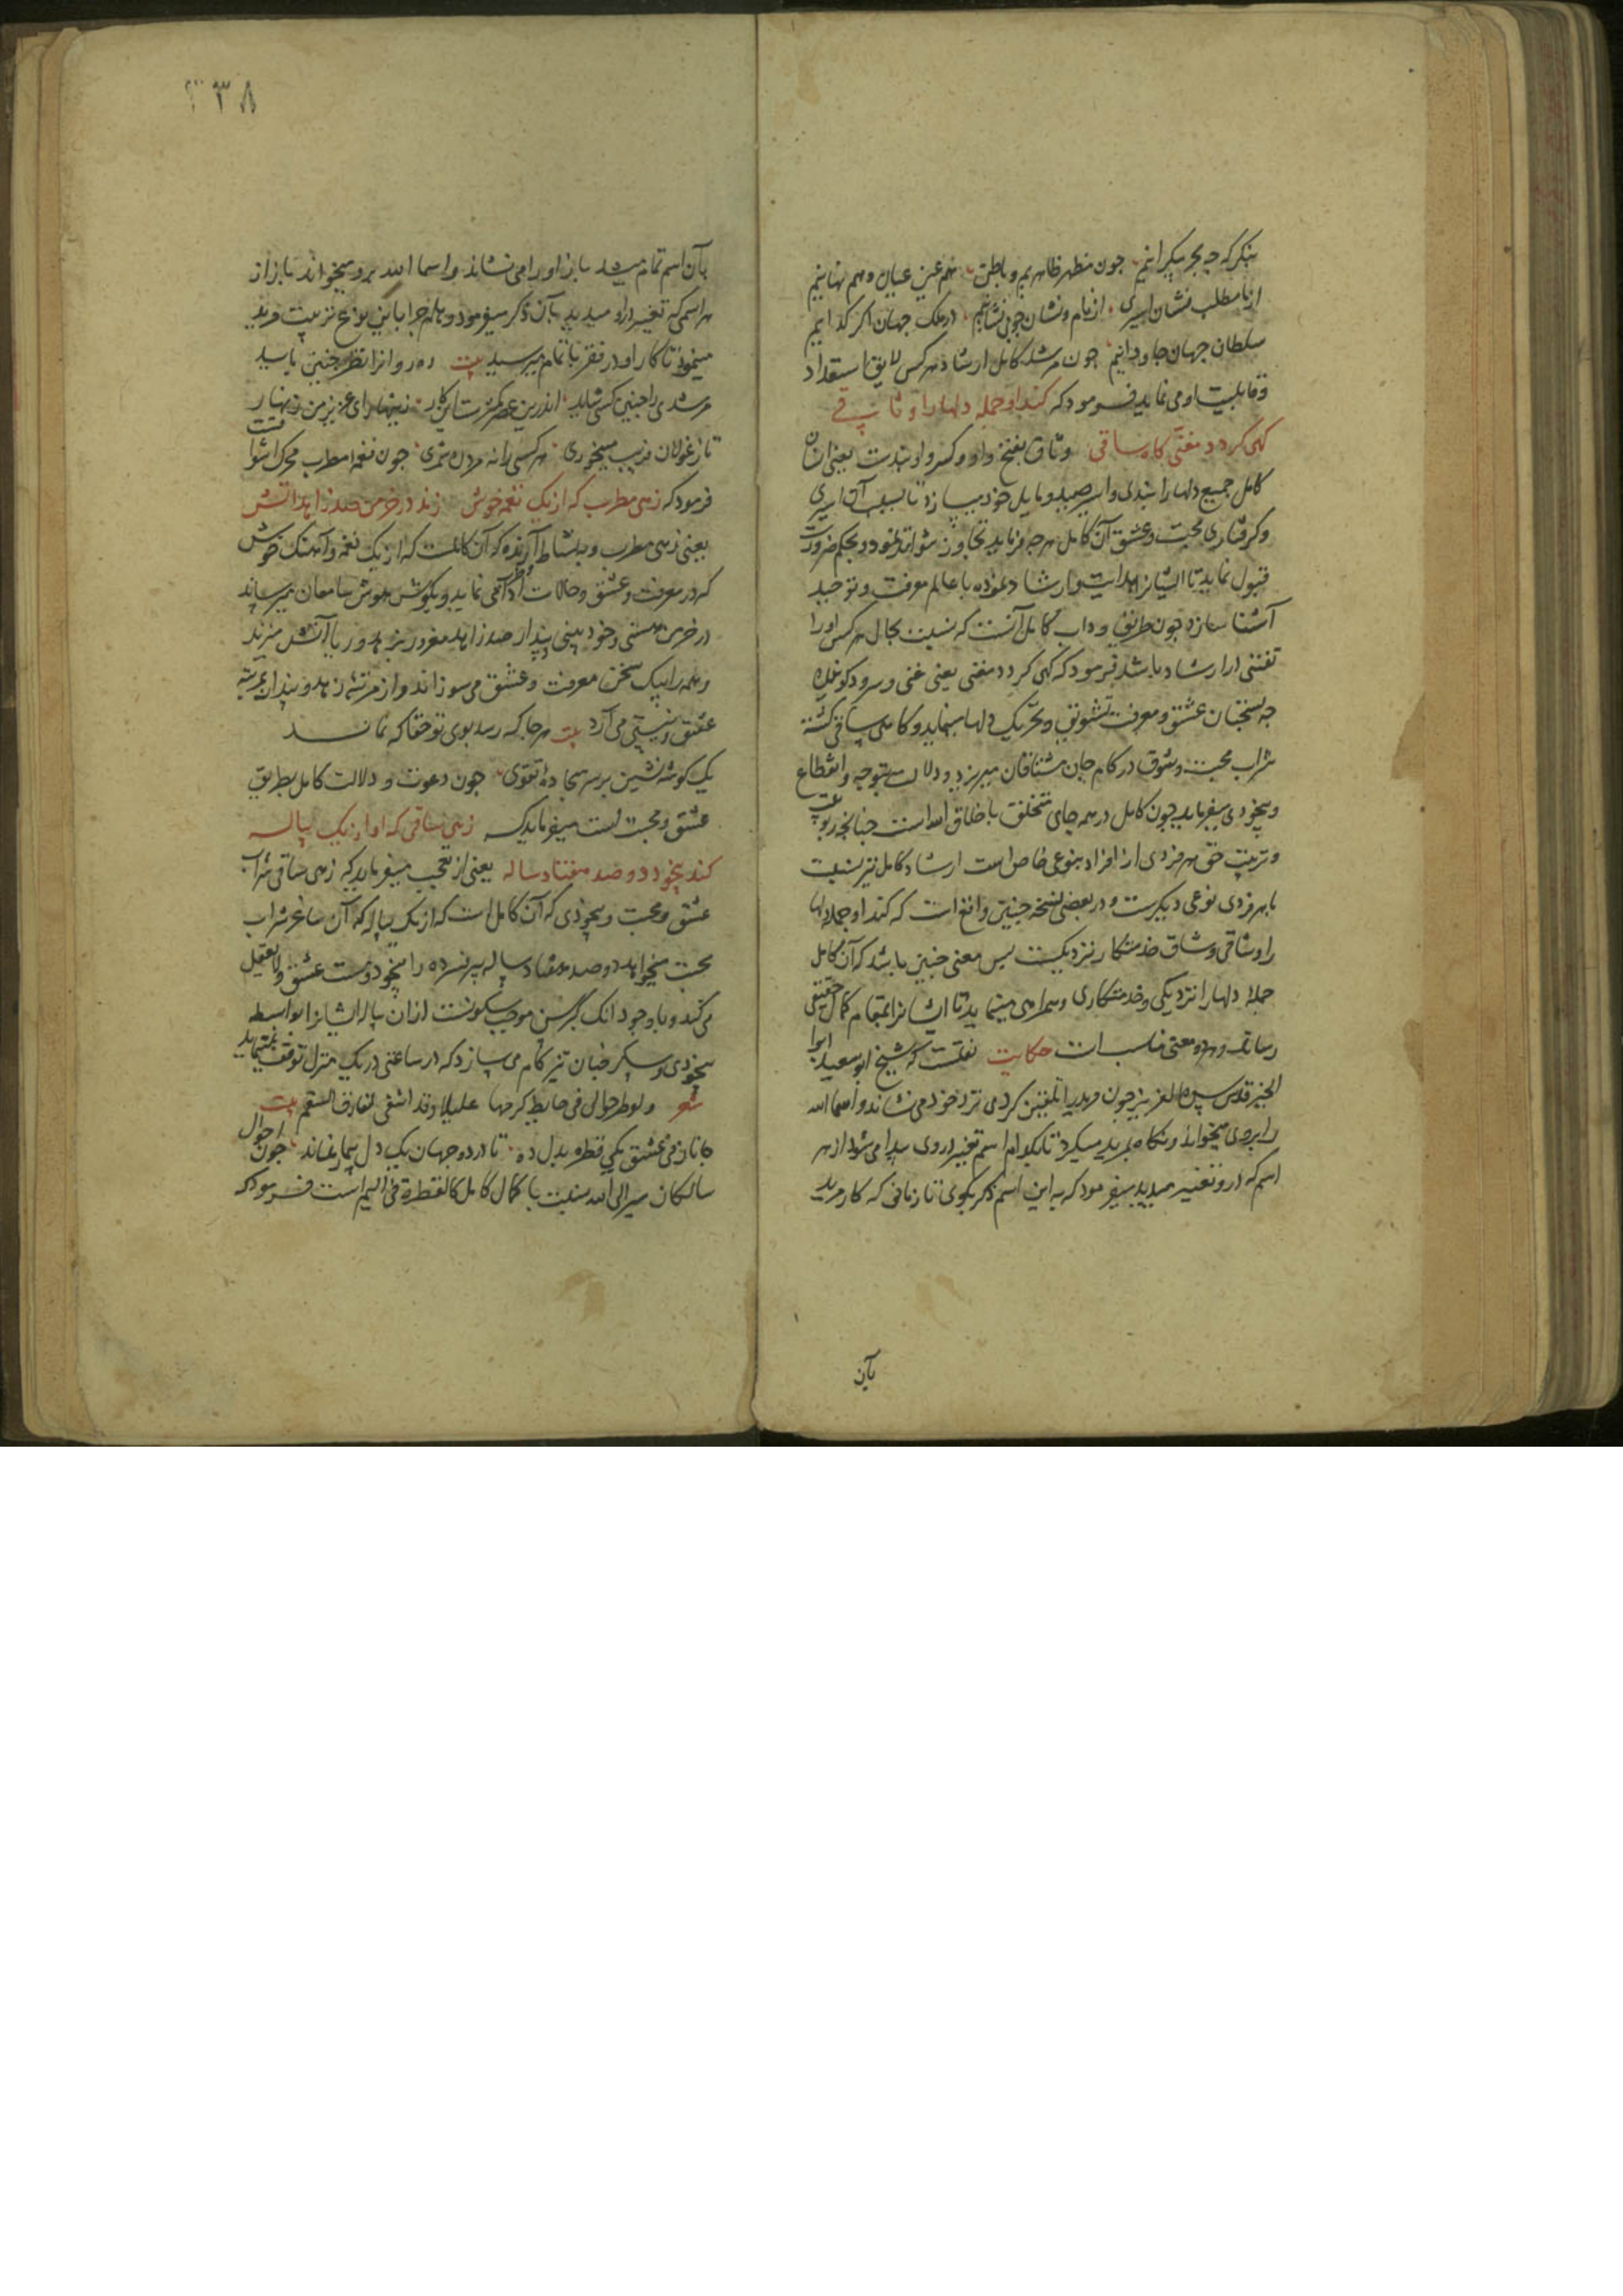 بنکر که چه بحر بیکرانیم چون مظهر ظاهریم و باطن هم عین عیان و هم نهانیم
از ما مطلب نشان اسیری از نام و نشان چو بی نشانیم در ملک جهان اکر کدایم
سلطان جهان جاودانیم چون مرشد کامل ارشاد هر کس لایق استعداد
و قابلیت او می نماید فرمود که کند او جمله دلها را وثاقی
کهی کردد مغنی کاه ساقی وثاق بفتح واو و کسر واو بندست یعنی آن
کامل جمیع دلها را بندی و اسیر صید و مایل خود میسازد تا بسبب آن اسیری
و کرفتاری محبت و عشق آن کامل هر چه فرماید تجاوز نتواند نمود و بحکم ضرورت
قبول نماید تا ایشانرا هدایت و ارشاد نموده با عالم معرفت و توحید
آشنا سازد چون طریق و داب کامل آنست که نسبت بحال هر کس او را
تفننی در ارشاد باشد فرمود که کهی کردد مغنی یعنی غنی و سرودکوینده
چه بسخنان عشق و معرفت تشویق و تحریک دلها مینماید و کاهی ساقی کشته
شراب محبت و شوق در کام جان مشتاقان میریزد و دلالت بتوجه و انقطاع
و بیخودی میفرماید چون کامل در همه جای متخلق باخلاق الله است چنانچه ربوبیت
و تربیت حق هر فردی از افراد بنوعی خاص است ارشاد کامل نیز نسبت
با هر فردی نوعی دیکرست و در بعضی نسخه چنین واقع است که کند او جمله دلها
را وشاقی وشاق خدمتکار نزدیکست پس معنی چنین باشد که آن کامل
جمله دلها را نزدیکی و خدمتکاری و همراهی مینماید تا ایشانرا بمقام کمال حقیقی
رساند و هر دو معنی مناسب است حکایت نقلست که شیخ ابو سعید ابوا
الخیر قدس سره العزیز چون مرید را تلقین کردی نزد خود می نشاند و اسما الله
را بروی میخواند و نکاه بمرید میکرد تا بکدام اسم تغییر در وی پیدا می شود از هر
اسم که در و تغییر میدید میفرمود که به این اسم ذکر بکوی تا زمانی که کار مرید
بآن
۳۸
بآن اسم تمام میشد باز او را می نشاند و اسما الله برو میخواند باز از
هر اسمی که تغییر در او میدید بآن ذکر میفرمود و هلم جرا باین نوع تربیت مرید
مینمود تا کار او در فقر باتمام میرسید بیت ره روانرا نظر چنین باید
مرشدی را چنین کسی شاید اندرین عصر کمترست این کار زینهار ای عزیز من زنهار
تا ز غولان فریب میخوری هر کسی را نه مرد ره شمری چون نغمه مطرب محرک اشواقست
فرمود که زهی مطرب که از یک نغمه خوش زند در خرمن صد زاهد آتش
یعنی زهی مطرب و بنشاط آرنده که آن کاملست که از یک نغمه و آهنک خوش
که در معرفت و عشق و حالات و اطوار آدمی نماید و بکوش هوش سامعان میرساند
در خرمن هستی و خود بینی و پندار صد زاهد مغرور بزهد و ریا آتش میزند
و همه را بیک سخن معرفت و عشق می سوزاند و از مرتبه زهد و پندار بمرتبه
عشق و نیستی می آرد بیت هر جا که رسد بوی تو حقا که نماند
یک کوشه نشین بر سر سجاده تقوی چون دعوت و دلالت کامل بطریق
عشق و محبت است میفرماید که زهی ساقی که او از یک پیاله
کند بیخود دو صد هفتاد ساله یعنی از تعجب میفرماید که زهی ساقی شراب
عشق و محبت و بیخودی که آن کامل است که از یک پیاله که آن ساغر شراب
محبت میخواهد دو صد هفتاد ساله پیر فسرده را بیخود و مست عشق و لایعقل
می کند و با وجود آنک کبر سن موجب سکونست از آن پیاله ایشانرا بواسطه
بیخودی و سکر چنان تیز کام می سازد که در ساعتی در یک منزل توقف نمینماید
شعر ولو طرحوا فی فی حایط کرمها علیلا وقد اشفی لفارقه السقم بیت
جانا ز می عشق یکی قطره بدل ده تا در دو جهان یک دل بیمار نماند چون احوال
سالکان سیر الی الله نسبت با کمال کامل کالقطرة فی الیم است فرمود که